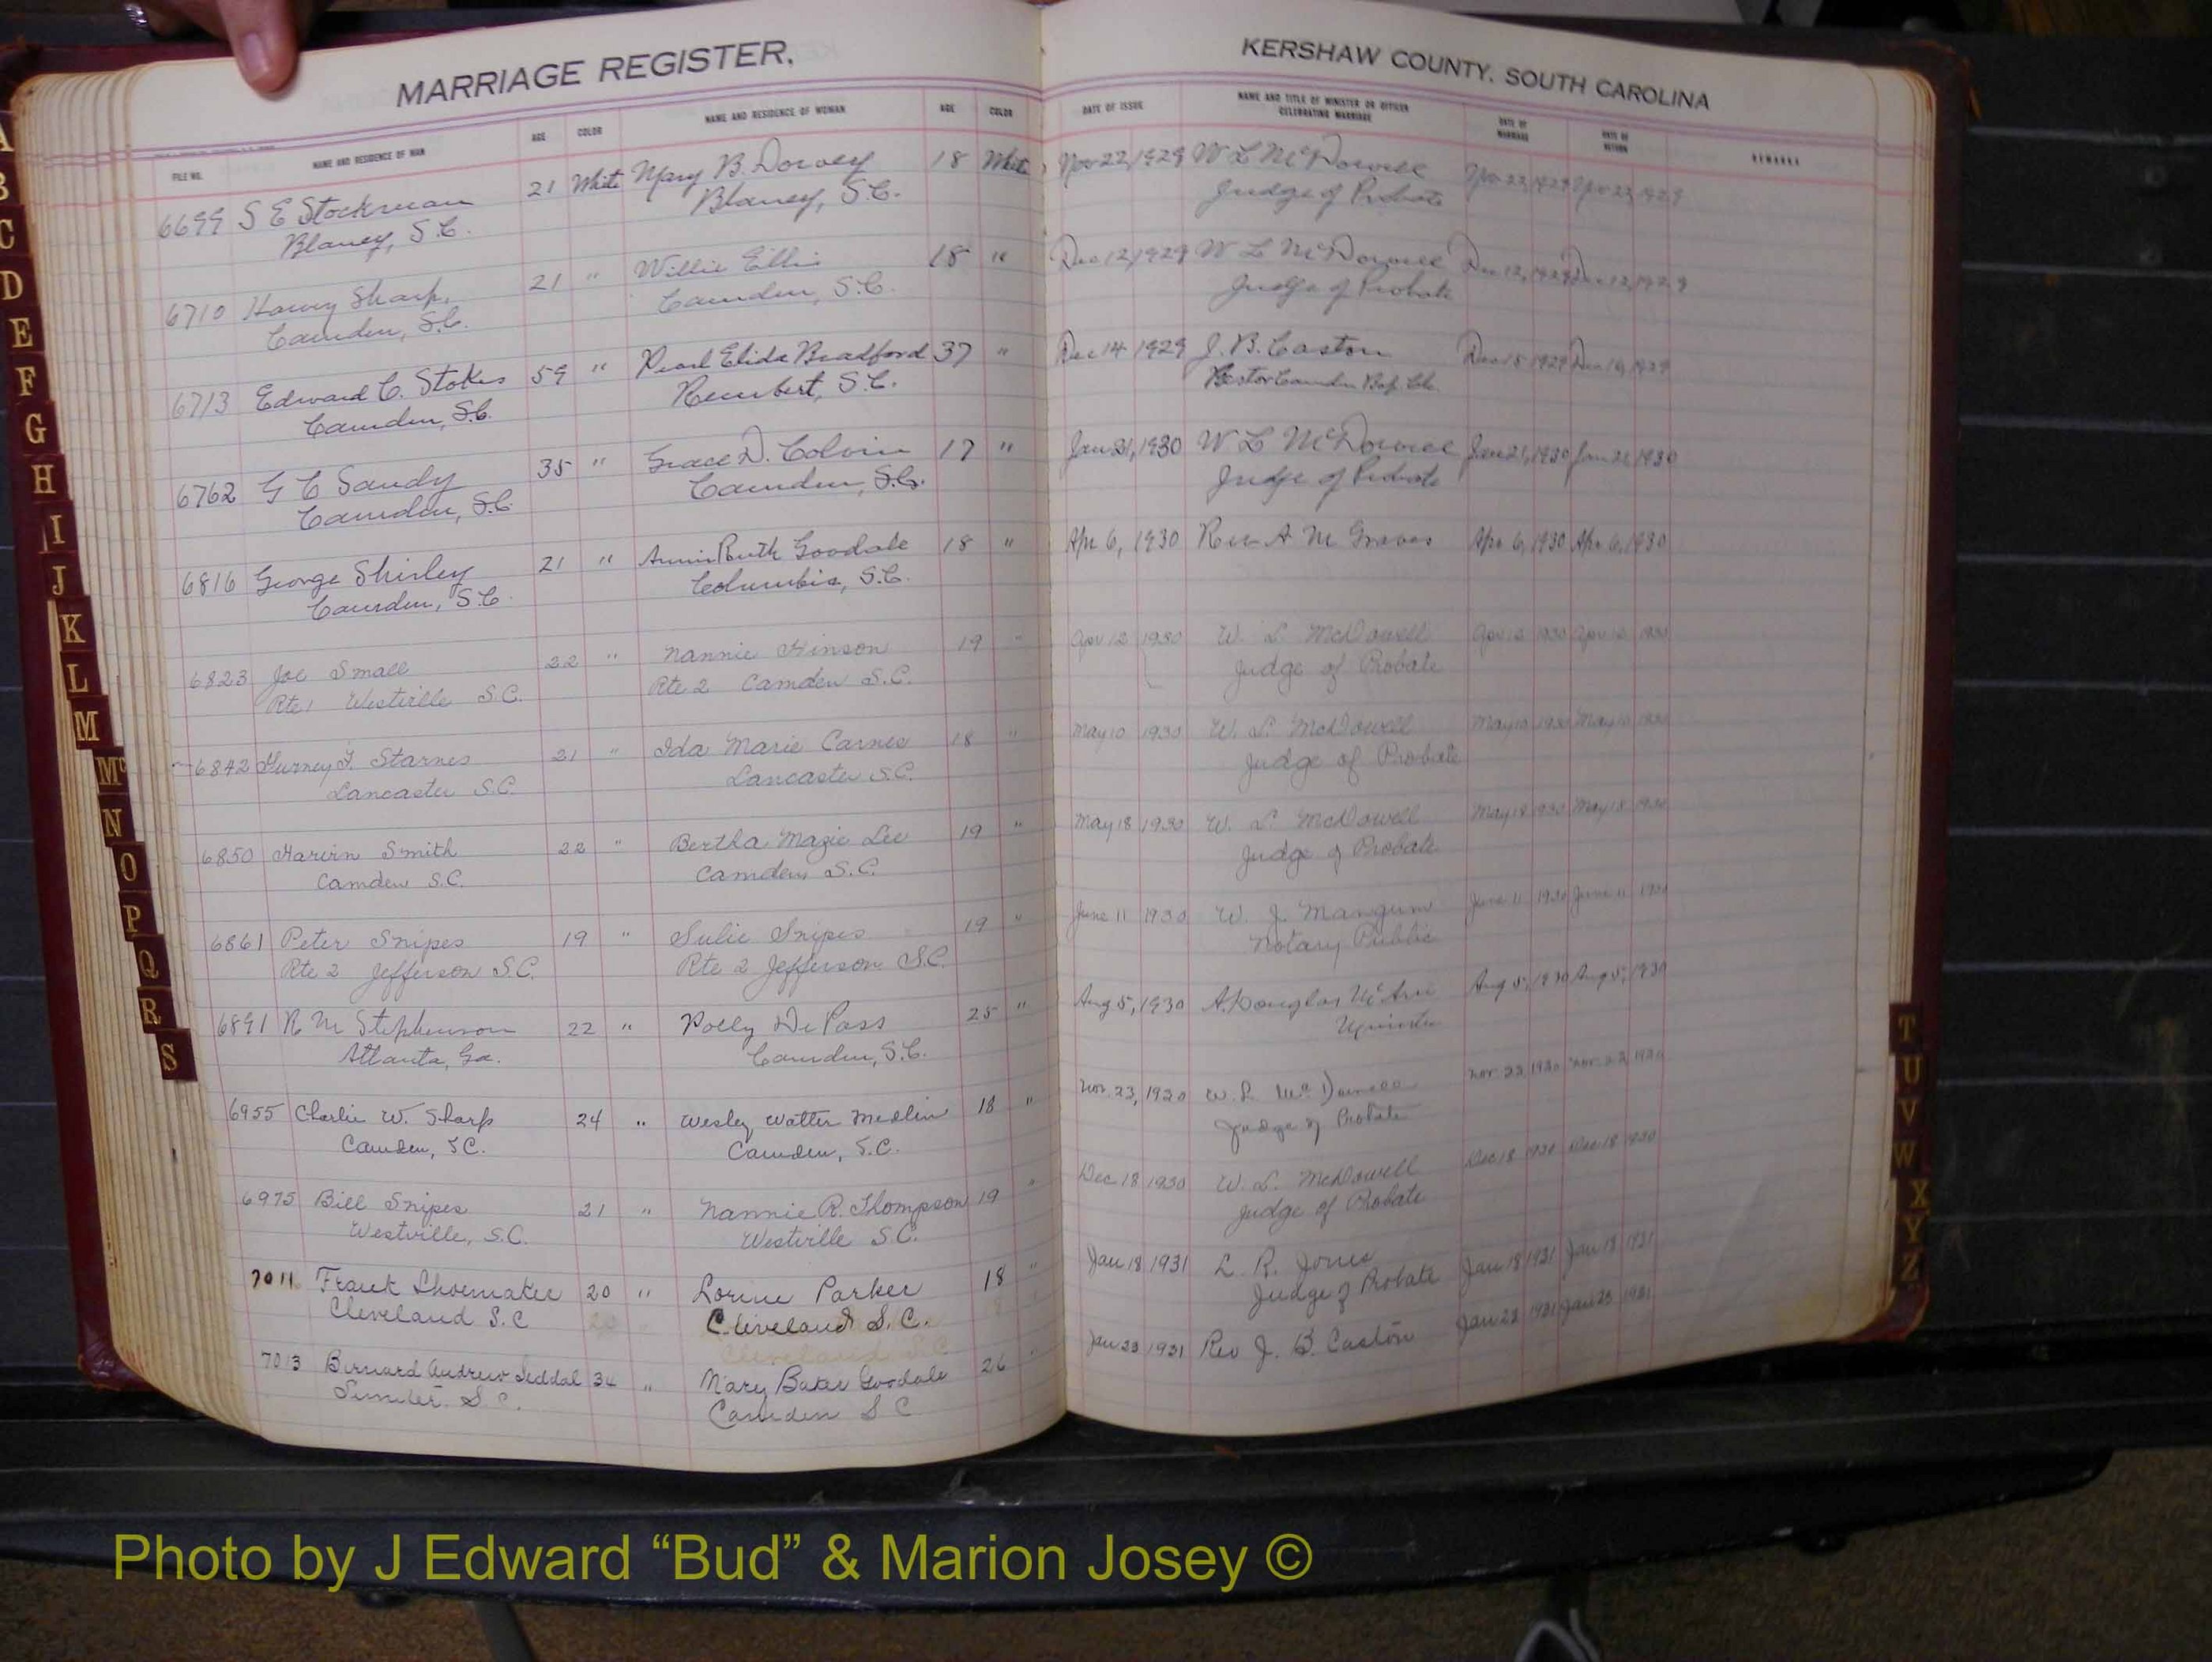 MARRIAGE REGISTER,
KERSHAW COUNTY, SOUTH CAROLINA
FILE NO. NAME AND RESIDENCE OF MAN AGE COLOR NAME AND RESIDENCE OF WOMAN AGE COLOR DATE OF ISSUE NAME AND TITLE OF MINISTER OR OFFICER CELEBRATING MARRIAGE DATE OF MARRIAGE DATE OF RETURN REMARKS
6699 S E Stockman 21 White Mary B. Dorvey 18 White Nov 22, 1929 W L McDowell Nov 23, 1929 Nov 23, 1929
Blaney, S.C. Blaney, S.C. Judge of Probate
6710 Harvey Sharp, 21 " Willie Ellis 18 " Dec 12, 1929 W L McDowell Dec 12, 1929 Dec 12, 1929
Camden, S.C. Camden, S.C. Judge of Probate
6713 Edward C. Stokes 59 " Pearl Elida Bradford 37 " Dec 14 1929 J. B. Caston Dec 15 1929 Dec 16, 1929
Camden, S.C. Rembert, S.C. Pastor Camden Bap. Ch.
6762 G C Sandy 35 " Grace D. Colvin 17 " Jan 21, 1930 W L McDowell Jan 21, 1930 Jan 21, 1930
Camden, S.C. Camden, S.C. Judge of Probate
6816 George Shirley 21 " Annie Ruth Goodale 18 " Apr 6, 1930 Rev A M Graves Apr 6, 1930 Apr 6, 1930
Camden, S.C. Columbia, S.C.
6823 Joe Small 22 " Nannie Hinson 19 " Apr 12 1930 W. L. McDowell Apr 12 1930 Apr 12 1930
Rte 1 Westville S.C. Rte 2 Camden S.C. Judge of Probate
6842 Furney F. Starnes 21 " Ida Marie Carnes 18 " May 10 1930 W. L. McDowell May 10 1930 May 10 1930
Lancaster S.C. Lancaster S.C. Judge of Probate
6850 Harvin Smith 22 " Bertha Magie Lee 19 " May 18 1930 W. L. McDowell May 18 1930 May 18 1930
Camden S.C. Camden S.C. Judge of Probate
6861 Peter Snipes 19 " Sulie Snipes 19 " June 11 1930 W. J. Mangum June 11 1930 June 11 1930
Rte 2 Jefferson S.C. Rte 2 Jefferson S.C. Notary Public
6891 R M Stephenson 22 " Polly DePass 25 " Aug 5, 1930 A. Douglas Aug 5, 1930 Aug 5, 1930
Atlanta, Ga. Camden, S.C. Minister
6955 Charlie W. Sharp 24 " Wesley Watter Medlin 18 " Nov. 23, 1930 W. L. McDowell Nov. 23 1930 Nov. 23, 1930
Camden, S.C. Camden, S.C. Judge of Probate
6975 Bill Snipes 21 " Nannie R. Thompson 19 " Dec 18 1930 W. L. McDowell Dec 18 1930 Dec 18 1930
Westville, S.C. Westville S.C. Judge of Probate
7011 Frank Shoemaker 20 " Lorine Parker 18 " Jan 18 1931 L. R. Jones Jan 18 1931 Jan 18 1931
Cleveland S.C Cleveland S.C. Judge of Probate
7013 Bernard Andrew Siddal 34 " Mary Baker Goodale 26 " Jan 23 1931 Rev J. B. Caston Jan 23 1931 Jan 23 1931
Sumter. S C. Camden S C
A
B
C
D
E
F
G
H
I
J
K
L
M
Mc
N
O
P
Q
R
S
T
U
V
W
X
Y
Z
Photo by J Edward “Bud” & Marion Josey ©